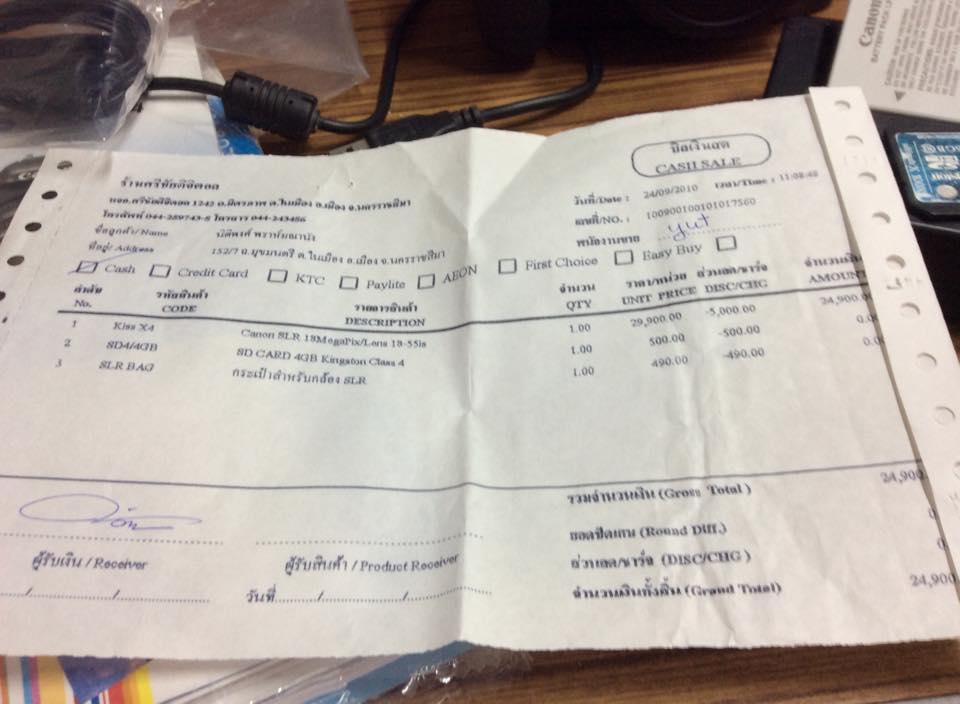 Canon
BATTERY PACK
บิลเงินสด
CASH SALE
ร้านศรีชัยดิจิตอล
หจก.ศรีชัยดิจิตอล 1242 ถ.มิตรภาพ ต.ในเมือง อ.เมือง จ.นครราชสีมา
โทรศัพท์ 044-259743-5 โทรสาร 044-243456
วันที่/Date : 24/09/2010 เวลา/Time : 11:08:48
เลขที่/NO. : 100900100101017560
ชื่อลูกค้า/Name
พนักงานขาย yut
ชื่อที่อยู่/ Address 152/7 ถ.มุขมนตรี ต.ในเมือง อ.เมือง จ.นครราชสีมา
Cash Credit Card KTC Paylite AEON First Choice Easy Buy
ลำดับ รหัสสินค้า รายการสินค้า จำนวน ราคา/หน่วย ส่วนลด/ชาร์จ จำนวนเงิน
No. CODE DESCRIPTION QTY UNIT PRICE DISC/CHG AMOUNT
1 Kiss X4 Canon SLR 18MegaPix/Lens 18-55is 1.00 29,900.00 -5,000.00 24,900.00
2 SD4/4GB SD CARD 4GB Kingston Class 4 1.00 500.00 -500.00 0.00
3 SLR BAG กระเป๋าสำหรับกล้อง SLR 1.00 490.00 -490.00
รวมจำนวนเงิน (Gross Total ) 24,900
ยอดปัดเศษ (Round Diff.)
ส่วนลด/ชาร์จ (DISC/CHG )
จำนวนเงินทั้งสิ้น (Grand Total) 24,900
ผู้รับเงิน / Receiver ผู้รับสินค้า / Product Receiver
วันที่......../......../........